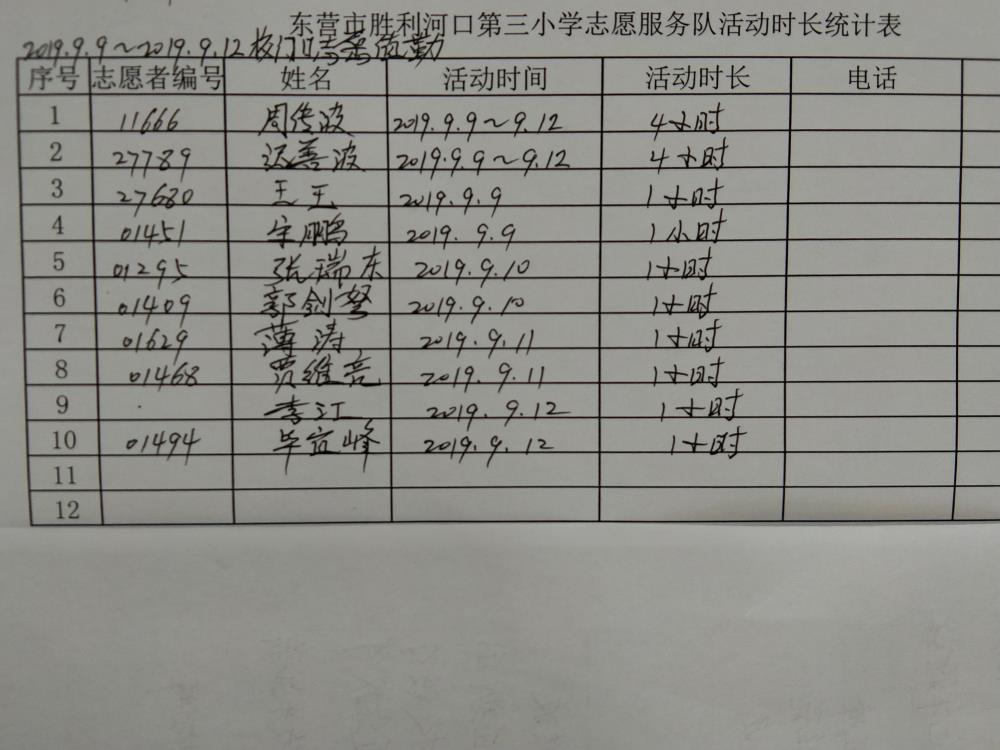 东营市胜利河口第三小学志愿服务队活动时长统计表
2019.9.9～2019.9.12校门口 值勤
序号 志愿者编号 姓名 活动时间 活动时长 电话
1 11666 周传波 2019.9.9～9.12 4小时
2 27789 善波 2019.9.9～9.12 4小时
3 27680 王王 2019.9.9 1小时
4 01451 宋鹏 2019.9.9 1小时
5 01295 张瑞东 2019.9.10 1小时
6 01409 郭剑 2019.9.10 1小时
7 01629 薄涛 2019.9.11 1小时
8 01468 贾维亮 2019.9.11 1小时
9 李江 2019.9.12 1小时
10 01494 毕宜峰 2019.9.12 1小时
11
12